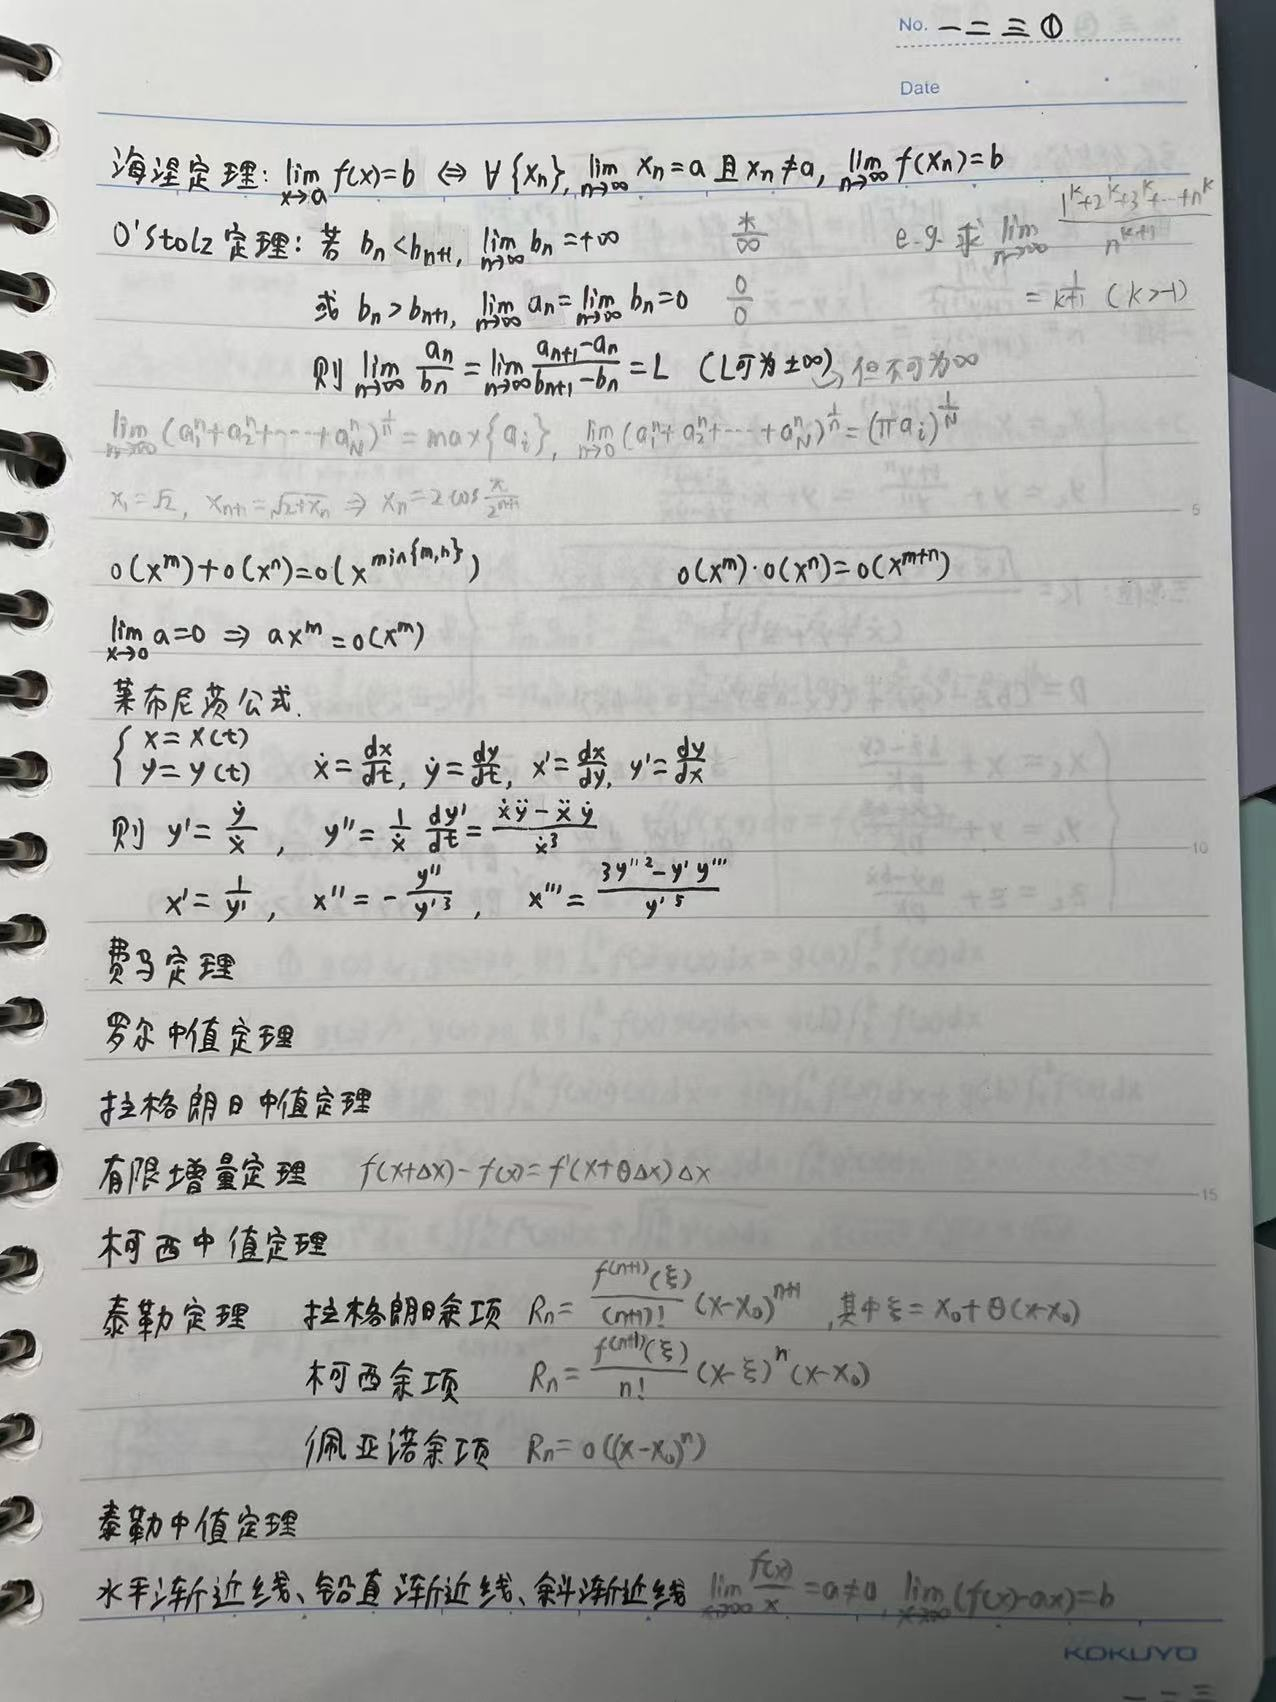 No. 一 二 三 ①
Date
海涅定理: lim_{x→a} f(x)=b ⇔ ∀{xₙ}, lim_{n→∞} xₙ=a 且 xₙ≠a, lim_{n→∞} f(xₙ)=b
O'Stolz定理: 若 bₙ<bₙ₊₁, lim_{n→∞} bₙ=+∞ */∞ e.g. 求 lim_{n→∞} (1^k+2^k+3^k+…+n^k)/n^{k+1}
或 bₙ>bₙ₊₁, lim_{n→∞} aₙ=lim_{n→∞} bₙ=0 0/0 = 1/(k+1) (k>-1)
则 lim_{n→∞} aₙ/bₙ = lim_{n→∞} (aₙ₊₁-aₙ)/(bₙ₊₁-bₙ) = L (L可为±∞), 但不可为∞
lim_{n→∞} (a₁ⁿ+a₂ⁿ+……+a_Nⁿ)^{1/n} = max{aᵢ}, lim_{n→0} (a₁ⁿ+a₂ⁿ+…+a_Nⁿ)^{1/n} = (π aᵢ)^{1/N}
x₁=√2, xₙ₊₁=√(2+xₙ) ⇒ xₙ=2cos π/2^{n+1}
o(x^m)+o(x^n)=o(x^{min{m,n}}) o(x^m)·o(x^n)=o(x^{m+n})
lim_{x→0} a=0 ⇒ ax^m=o(x^m)
莱布尼茨公式.
{ x=x(t)
y=y(t) ẋ=dx/dt, ẏ=dy/dt, x'=dx/dy, y'=dy/dx
则 y'=ẏ/ẋ, y''=1/ẋ dy'/dt=(ẋÿ-ẍẏ)/ẋ³
x'=1/y', x''=-y''/y'³, x'''=(3y''²-y'y''')/y'⁵
费马定理
罗尔中值定理
拉格朗日中值定理
有限增量定理 f(x+Δx)-f(x)=f'(x+θΔx)Δx
柯西中值定理
泰勒定理 拉格朗日余项 Rₙ=f^{(n+1)}(ξ)/(n+1)! (x-x₀)^{n+1}, 其中ξ=x₀+θ(x-x₀)
柯西余项 Rₙ=f^{(n+1)}(ξ)/n! (x-ξ)^n(x-x₀)
佩亚诺余项 Rₙ=o((x-x₀)^n)
泰勒中值定理
水平渐近线、铅直渐近线、斜渐近线 lim_{x→∞} f(x)/x=a≠0 lim_{x→∞}(f(x)-ax)=b
5
10
15
KOKUYO